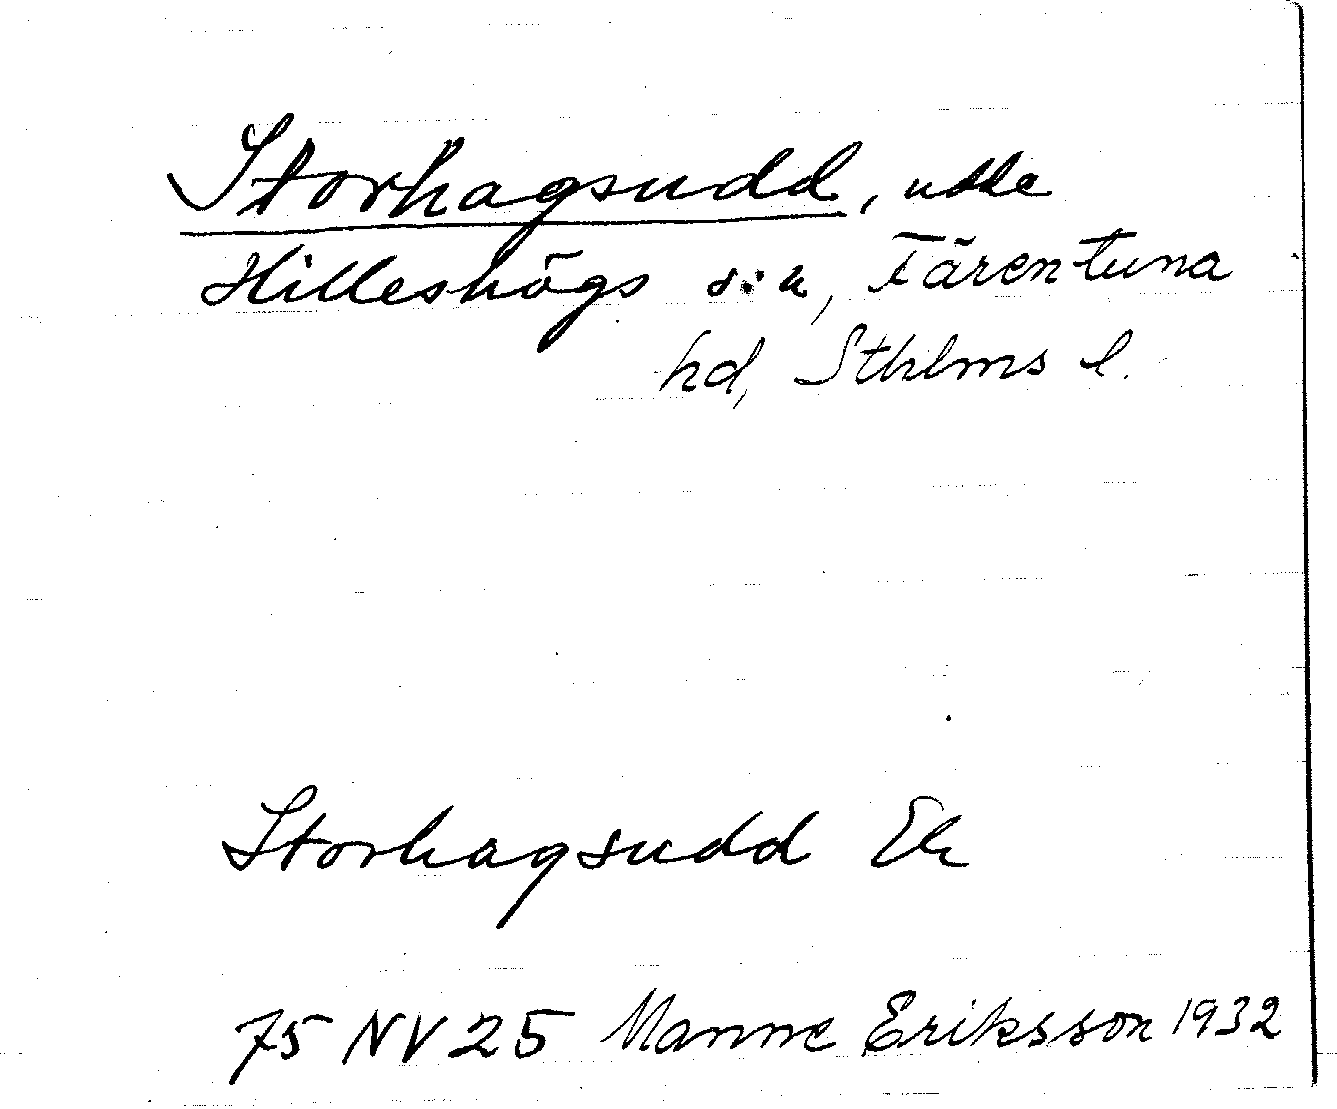 Storhagsudd, udde
Hilleshögs s:n, Färentuna
hd, Sthlms l.
Storhagsudd Ek
75 NV 25 Manne Eriksson 1932